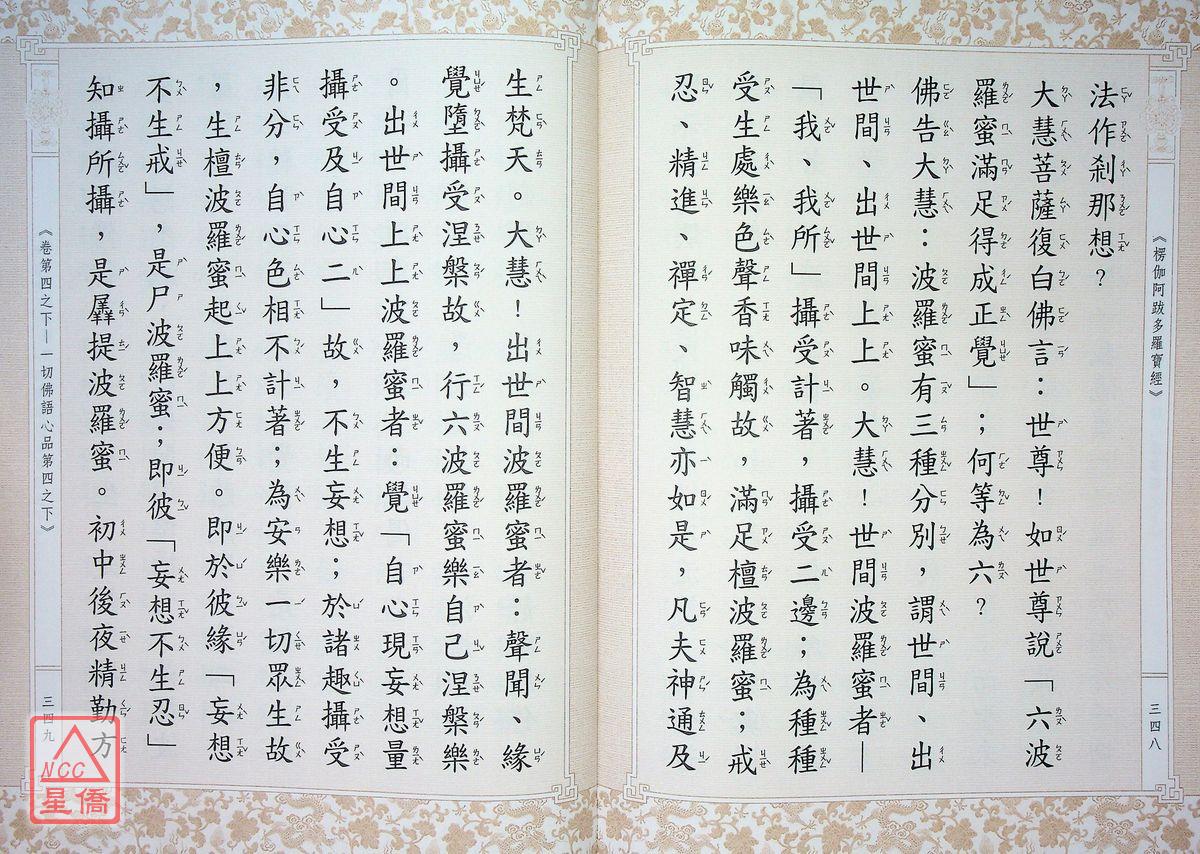 《楞伽阿跋多羅寶經》
三四八
法作剎那想？
大慧菩薩復白佛言：世尊！如世尊說「六波
羅蜜滿足得成正覺」；何等為六？
佛告大慧：波羅蜜有三種分別，謂世間、出
世間、出世間上上。大慧！世間波羅蜜者—
「我、我所」攝受計著，攝受二邊；為種種
受生處樂色聲香味觸故，滿足檀波羅蜜；戒
忍、精進、禪定、智慧亦如是，凡夫神通及
生梵天。大慧！出世間波羅蜜者：聲聞、緣
覺墮攝受涅槃故，行六波羅蜜樂自己涅槃樂
。出世間上上波羅蜜者：覺「自心現妄想量
攝受及自心二」故，不生妄想；於諸趣攝受
非分，自心色相不計著；為安樂一切眾生故
，生檀波羅蜜起上上方便。即於彼緣「妄想
不生戒」，是尸波羅蜜；即彼「妄想不生忍」
知攝所攝，是羼提波羅蜜。初中後夜精勤方
《卷第四之下—一切佛語心品第四之下》
三四九
NCC
星僑